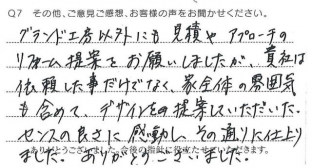 Q7 その他、ご意見ご感想、お客様の声をお聞かせください。
グランド工房以外にも見積やアプローチの
リフォーム提案をお願いしましたが、貴社は
依頼した事だけでなく、家全体の雰囲気
も含めて、デザインをご提案していただいた。
センスの良さに感動し、その通りに仕上り
ました。ありがとうございました。
ありがとうございました。今後の指針に役立たせていただきます。